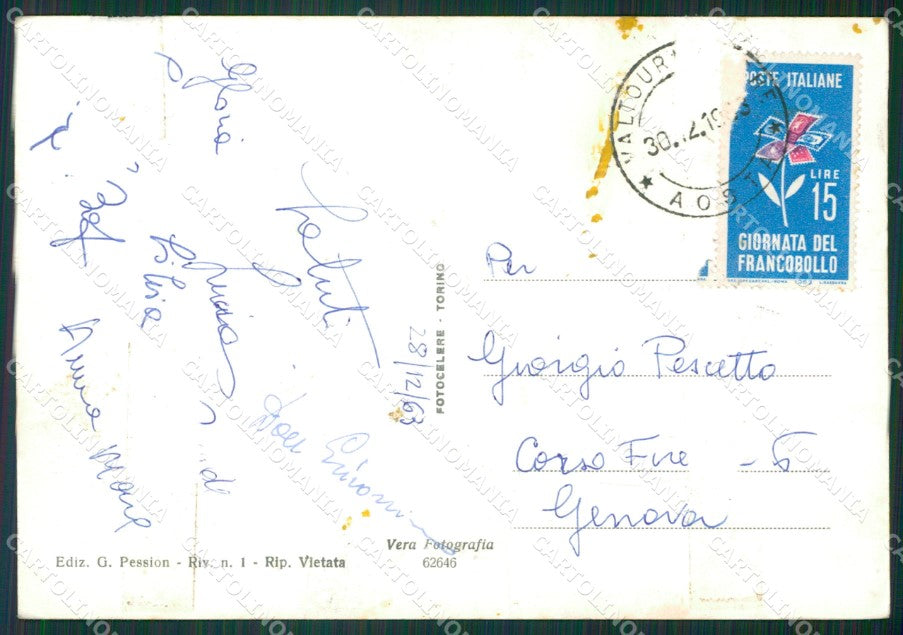 Gloria
Saluti
Silvia
Anna Maria
28/12/63
FOTOCELERE - TORINO
Ediz. G. Pession - Riv. n. 1 - Rip. Vietata
Vera Fotografia
62646
AOSTA
POSTE ITALIANE
LIRE
15
GIORNATA DEL
FRANCOBOLLO
Per
Giorgio Pescetto
Corso Fire - 5
Genova
CARTOLINOMANIA